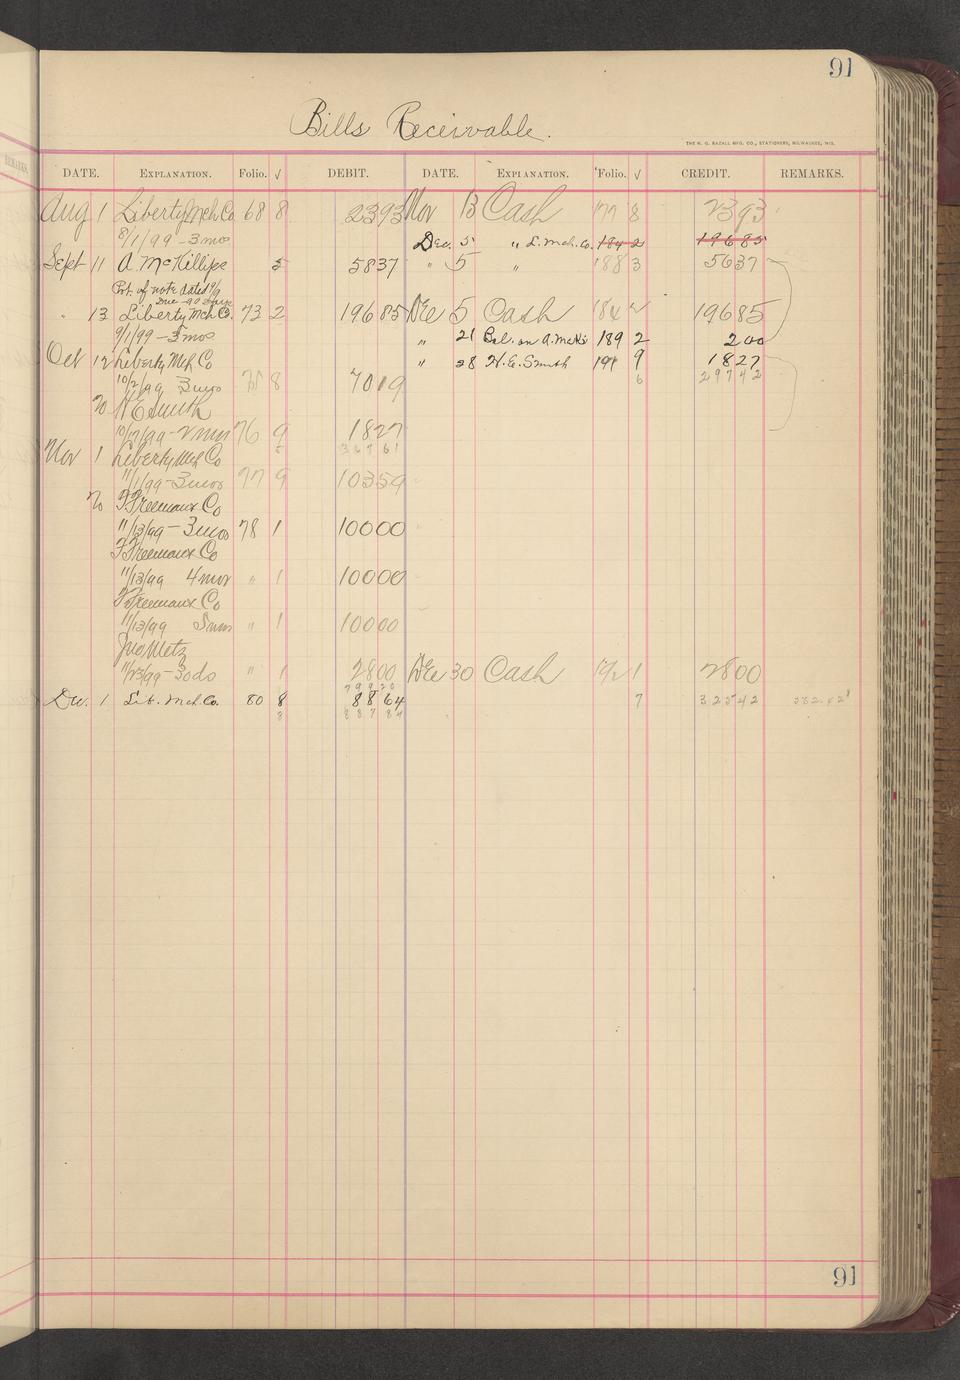 91
Bills Receivable.
THE H. G. RAZALL MFG. CO., STATIONERS, MILWAUKEE, WIS.
DATE. EXPLANATION. Folio. √ DEBIT. DATE. EXPLANATION. Folio. √ CREDIT. REMARKS.
Aug 1 Liberty Mch Co 68 8 2393 Nov 13 Cash 177 8 2393
8/1/99 - 3 mos Dec. 5 " L. Mch. Co. 184 2 19685
Sept 11 A. McKillips 5 5837 " 5 " 188 3 5637
Pt. of note dated 9/9
Due - 90 days
" 13 Liberty Mch Co. 73 2 19685 Dec 5 Cash 184 2 19685
9/1/99 - 3 mos " 21 Bal. on A. McK's 189 2 200
Oct 12 Liberty Mch Co " 28 H. E. Smith 191 9 1827
10/2/99 3 mos 75 8 7019 6 29742
20 H E Smith
10/17/99 - 2 mos 76 9 1827
Nov 1 Liberty Mch Co 36761
11/1/99 - 3 mos 77 9 10359
20 F Freemaux Co
11/13/99 - 3 mos 78 1 10000
F Freemaux Co
11/13/99 4 mos " 1 10000
F Freemaux Co
11/13/99 5 mos " 1 10000
Jno Metz
11/23/99 - 30 ds " 1 2800 Dec 30 Cash 192 1 2800
79920
Dec. 1 Lib. Mch. Co. 80 8 8864 7 32542
3 88784
91